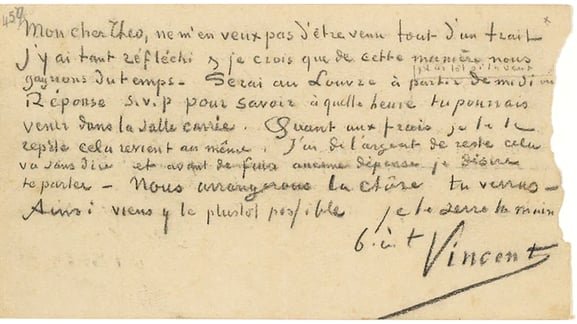 459
Mon cher Theo, ne m'en veux pas d'être venu tout d'un trait
J'y ai tant réfléchi & je crois que de cette manière nous
gagnons du temps - Serai au Louvre à partir de midi
plus tôt si tu veux
Réponse s.v.p pour savoir à quelle heure tu pourrais
venir dans la salle carrée. Quant aux frais, je te le
repète cela revient au même. J'ai de l'argent de reste cela
va sans dire et avant de faire aucune dépense je désire
te parler - Nous arrangerons la chôse tu verras -
Ainsi viens y le plustot possible je te serre la main
b. à t
Vincent